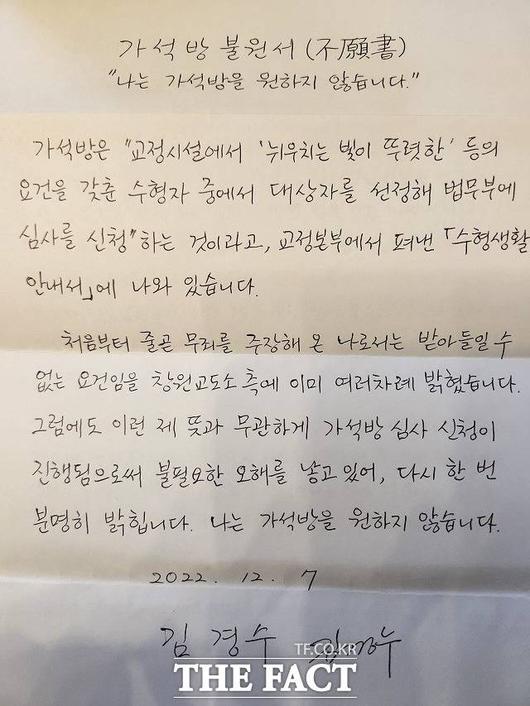 가석방 불원서 (不願書)
"나는 가석방을 원하지 않습니다."
가석방은 "교정시설에서 '뉘우치는 빛이 뚜렷한' 등의
요건을 갖춘 수형자 중에서 대상자를 선정해 법무부에
심사를 신청"하는 것이라고, 교정본부에서 펴낸 「수형생활
안내서」에 나와 있습니다.
처음부터 줄곧 무죄를 주장해 온 나로서는 받아들일 수
없는 요건임을 창원교도소 측에 이미 여러차례 밝혔습니다.
그럼에도 이런 제 뜻과 무관하게 가석방 심사 신청이
진행됨으로써 불필요한 오해를 낳고 있어, 다시 한 번
분명히 밝힙니다. 나는 가석방을 원하지 않습니다.
2022. 12. 7
김 경 수 김경수
TF.CO.KR
THE FACT